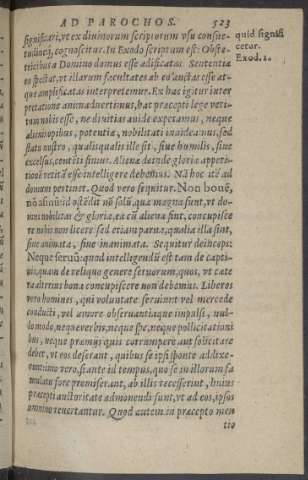 AD PAROCHOS. 523
significari, vt ex diuinorum scriptorum vsu consue-
tudineq́; cognoscitur. In Exodo scriptum est: Obste-
tricibus à Domino domus esse ædificatas. Sententia
eò spectat, vt illarum facultates ab eo auctas esse at-
que amplificatas interpretemur. Ex hac igitur inter
pretatione animaduertimus, hac præcepti lege veti-
tum nobis esse, ne diuitias auidè expetamus, neque
alienis opibus, potentiæ, nobilitati inuideamus, sed
statu nostro, qualisqualis ille sit, siue humilis, siue
excelsus, contēti simus. Alienæ deinde gloriæ appeti-
tionē vetitā esse intelligere debemus. Nā hoc itē ad
domum pertinet. Quod verò sequitur. Non bouē,
nō asinū: id ostēdit nō solū, quæ magna sunt, vt do-
mus nobilitas & gloria, ea cū aliena sint, concupisce
re nobis non licere sed etiam parua, qualia illa sint,
siue animata, siue inanimata. Sequitur deinceps:
Neque seruū: quod intelligendū est tam de capti-
uis, quàm de reliquo genere seruorum, quos, vt cæte
ra alterius bona concupiscere non debemus. Liberos
verò homines, qui voluntate seruiunt vel mercede
conducti, vel amore obseruantiaque impulsi, nul-
lo modo, neque verbis, neque spe, neque pollicitationi
bus, neque præmijs quis corrumpere aut sollicitare
debet, vt eos deserant, quibus se ipsi sponte addixe-
runt: imò verò, si ante id tempus, quo se in illorum fa
mulatu fore promiserant, ab illis recesserint, huius
præcepti auctoritate admonendi sunt, vt ad eos, ipsos
omnino reuertantur. Quod autem in præcepto men
tio
quid signifi
cetur.
Exod. 1.